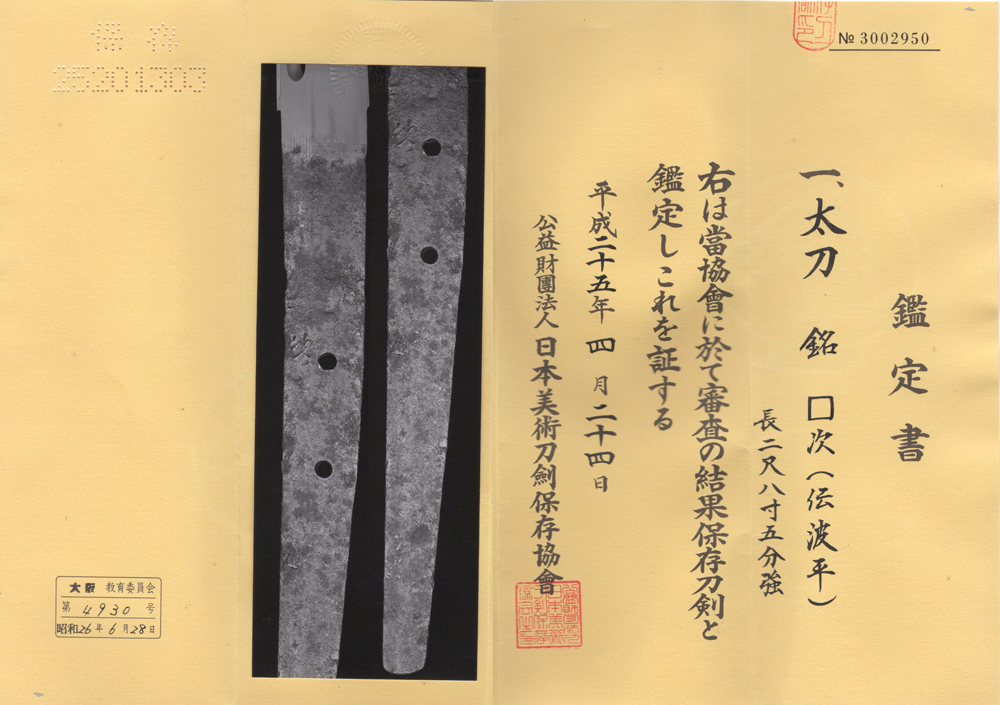 № 3002950
鑑定書
一、太刀 銘 □次(伝波平)
長二尺八寸五分強
右は當協會に於て審査の結果保存刀剣と
鑑定しこれを証する
平成二十五年 四 月二十四日
公益財團法人日本美術刀劍保存協會
保存
25201303
大阪 教育委員会
第 4930 号
昭和26年6月28日